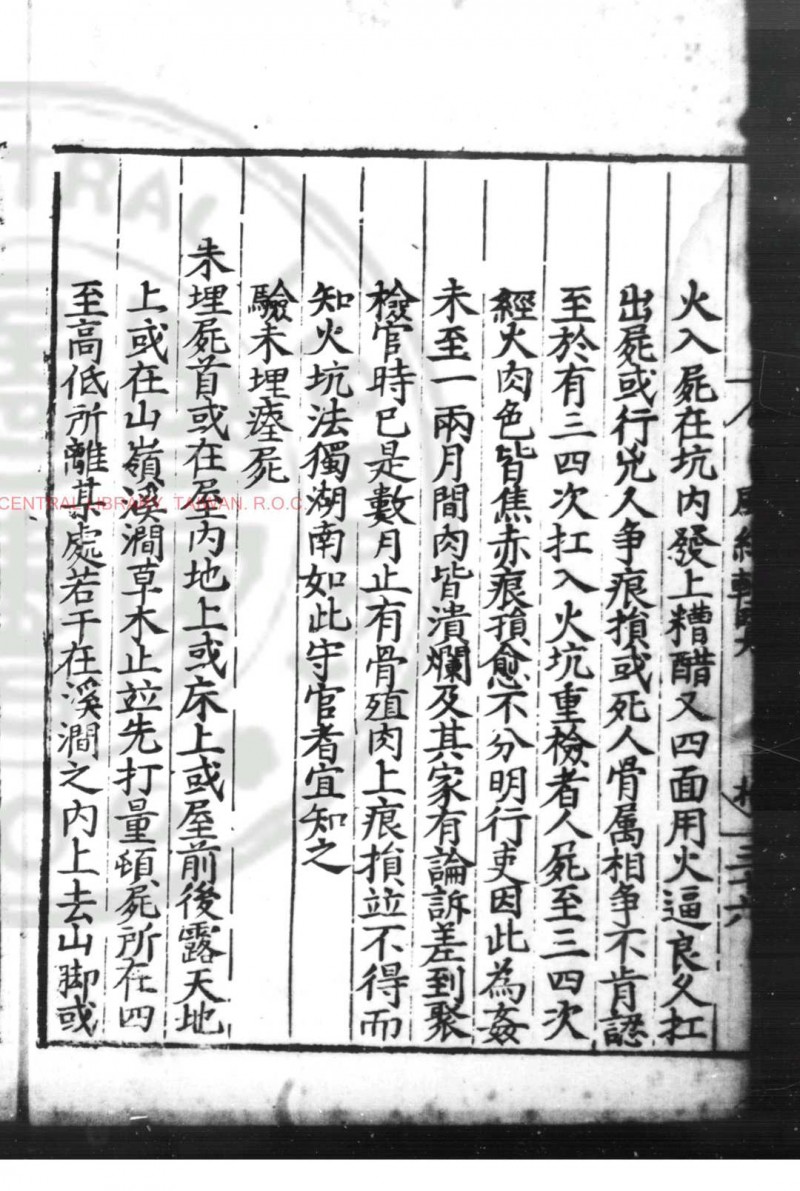 火入屍在坑內發上糟醋又四面用火逼良久扛
出屍或行兇人争痕損或死人骨屬相争不肯認
至於有三四次扛入火坑重檢者人屍至三四次
經火肉色皆焦赤痕損愈不分明行吏因此為姦
未至一兩月間肉皆潰爛及其家有論訴差到聚
檢官時已是數月止有骨殖肉上痕損並不得而
知火坑法獨湖南如此守官者宜知之
驗未埋瘞屍
未埋屍首或在屋內地上或床上或屋前後露天地
上或在山嶺溪澗草木止並先打量頓屍所在四
至高低所離某處若干在溪澗之內上去山脚或
三十六
CENTRAL LIBRARY. TAIWAN. R.O.C.